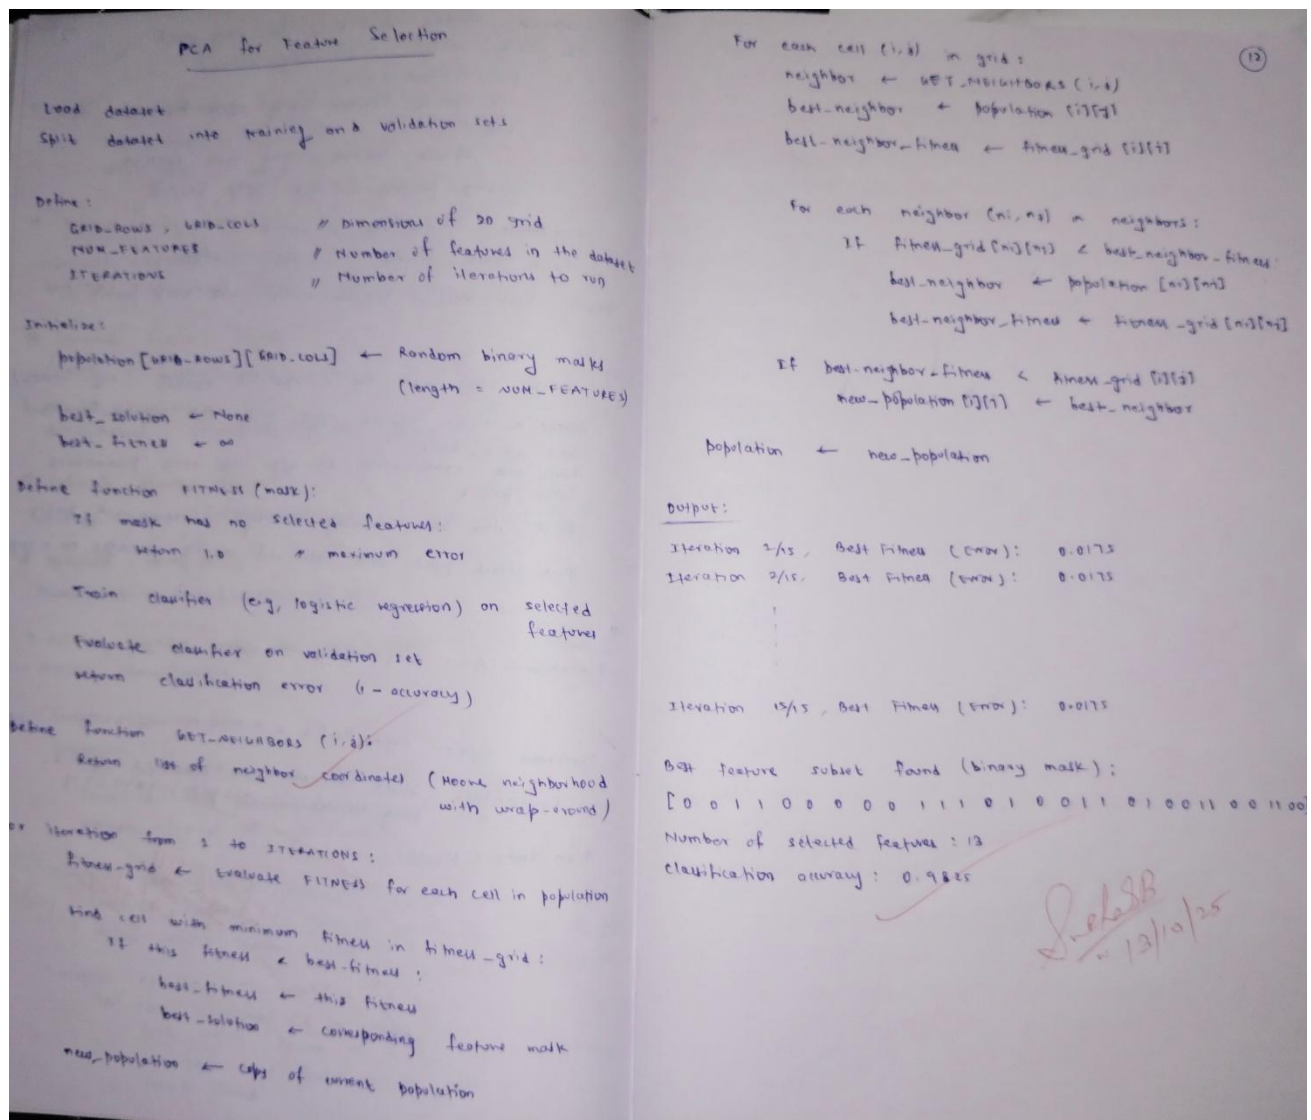 PCA for Feature Selection
Load dataset
Split dataset into training and validation sets
Define:
GRID_ROWS, GRID_COLS // Dimensions of 2D grid
NUM_FEATURES // Number of features in the dataset
ITERATIONS // Number of iterations to run
Initialize:
population[GRID_ROWS][GRID_COLS] ← Random binary masks
(length = NUM_FEATURES)
best_solution ← None
best_fitness ← ∞
Define function FITNESS (mask):
If mask has no selected features:
return 1.0 // maximum error
Train classifier (e.g, logistic regression) on selected
features
Evaluate classifier on validation set
return classification error (1 - accuracy)
Define function GET_NEIGHBORS (i,j):
Return list of neighbor coordinates (Moore neighborhood
with wrap-around)
For iteration from 1 to ITERATIONS:
fitness-grid ← Evaluate FITNESS for each cell in population
Find cell with minimum fitness in fitness_grid:
If this fitness < best-fitness:
best_fitness ← this fitness
best_solution ← corresponding feature mask
new_population ← copy of current population
12
For each cell (i,j) in grid:
neighbor ← GET_NEIGHBORS (i,j)
best_neighbor ← population [i][j]
best_neighbor_fitness ← fitness_grid [i][j]
For each neighbor (ni, nj) in neighbors:
If fitness_grid [ni][nj] < best_neighbor_fitness:
best_neighbor ← population [ni][nj]
best_neighbor_fitness ← fitness_grid [ni][nj]
If best_neighbor_fitness < fitness_grid [i][j]
new_population [i][j] ← best_neighbor
population ← new_population
Output:
Iteration 1/15, Best Fitness (Error): 0.0175
Iteration 2/15, Best Fitness (Error): 0.0175
Iteration 15/15, Best Fitness (Error): 0.0175
Best feature subset found (binary mask):
[0 0 1 1 0 0 0 0 0 1 1 1 0 1 0 0 0 1 1 0 1 0 0 1 1 0 0 1 1 0 0]
Number of selected features: 13
Classification accuracy: 0.9825
13/10/25